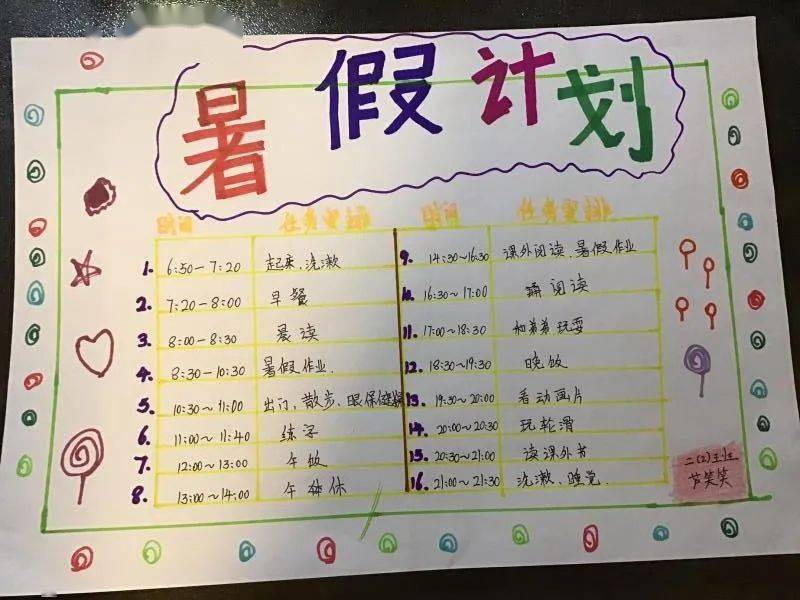 暑假计划
时间 任务安排
1. 6:50-7:20 起来、洗漱
2. 7:20-8:00 早餐
3. 8:00-8:30 晨读
4. 8:30-10:30 暑假作业.
5. 10:30~11:00 出门、散步、眼保健操
6. 11:00~11:40 练字
7. 12:00~13:00 午饭
8. 13:00~14:00 午休
时间 任务安排
9. 14:30~16:30 课外阅读、暑假作业
10. 16:30~17:00 诵阅读
11. 17:00~18:30 和弟弟玩耍
12. 18:30~19:30 晚饭
13. 19:30~20:00 看动画片
14. 20:00~20:30 玩轮滑
15. 20:30~21:00 读课外书
16. 21:00~21:30 洗漱、睡觉.
二(2)班
芦笑笑